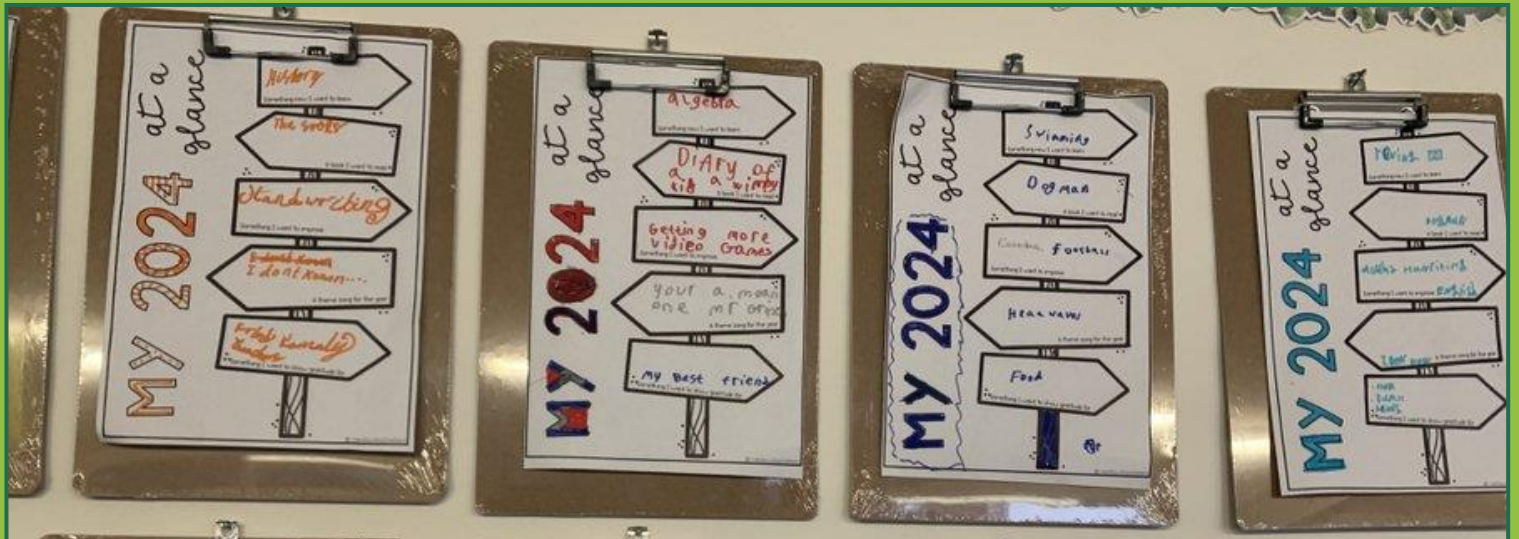 MY 2024
at a
glance
History
Something new I want to learn
The books
A book I want to read
Handwriting
Something I want to improve
I dont known
I dont known....
A theme song for the year
Something I want to show gratitude for
MY 2024
at a
glance
algebra
Something new I want to learn
DiAry of
a
kid a wimpy
A book I want to read
Getting more
vidieo Games
Something I want to improve
your a mean
one mr
A theme song for the year
my Best friend
Something I want to show gratitude for
MY 2024
at a
glance
Swimming
Something new I want to learn
Dogman
A book I want to read
football
Something I want to improve
A theme song for the year
Food
Something I want to show gratitude for
MY 2024
at a
glance
Something new I want to learn
A book I want to read
Something I want to improve English
I dont
A theme song for the year
Something I want to show gratitude for